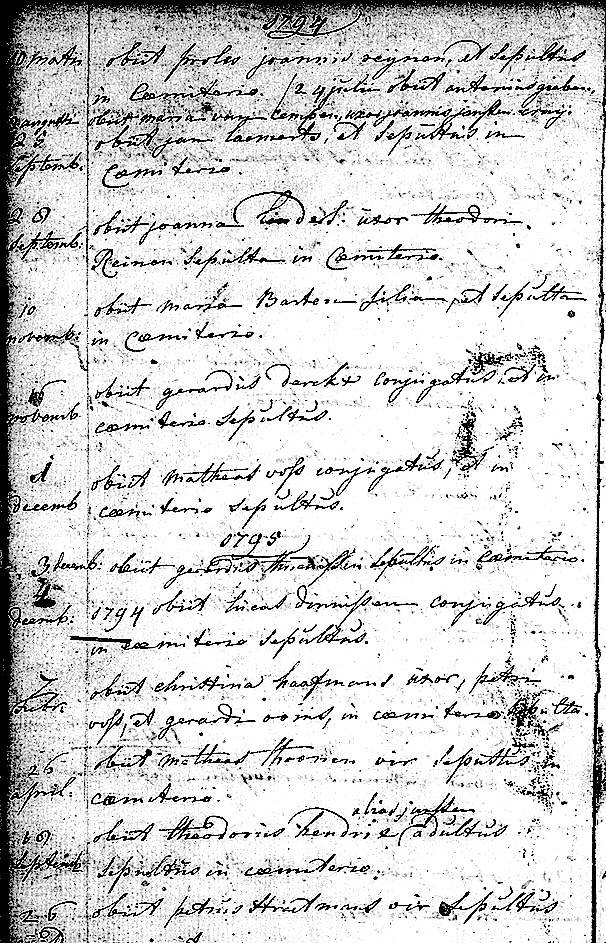 1794
10 martii obiit proles joannis reynen, et sepultus
in Cæmiterio. 24 julii obiit
augusti obiit maria van uxor joannis
25 obiit jan et sepultus in
septemb. Cæmiterio.
28 obiit joanna uxor theodori
septemb: Reinen sepulta in Cæmiterio
10 obiit maria filia, et sepulta
novemb: in Cæmiterio.
16 obiit gerardus derckx conjugatus, et in
novemb cæmiterio sepultus.
1 obiit matheas voss conjugatus, et in
decemb cæmiterio sepultus.
1795
3 decemb: obiit gerardus sepultus in Cæmiterio.
4 1794 obiit lucas dinnissen conjugatus
decemb: in cæmiterio sepultus.
7 obiit christina haafmans uxor, petri
voss, et gerardi ooms, in cæmiterio sepulta.
26 obiit matheas thoonen vir sepultus in
april. cæmiterio.
alias janssen
18 obiit theodorus adultus
septemb sepultus in cæmiterio.
26 obiit petrus vir sepultus